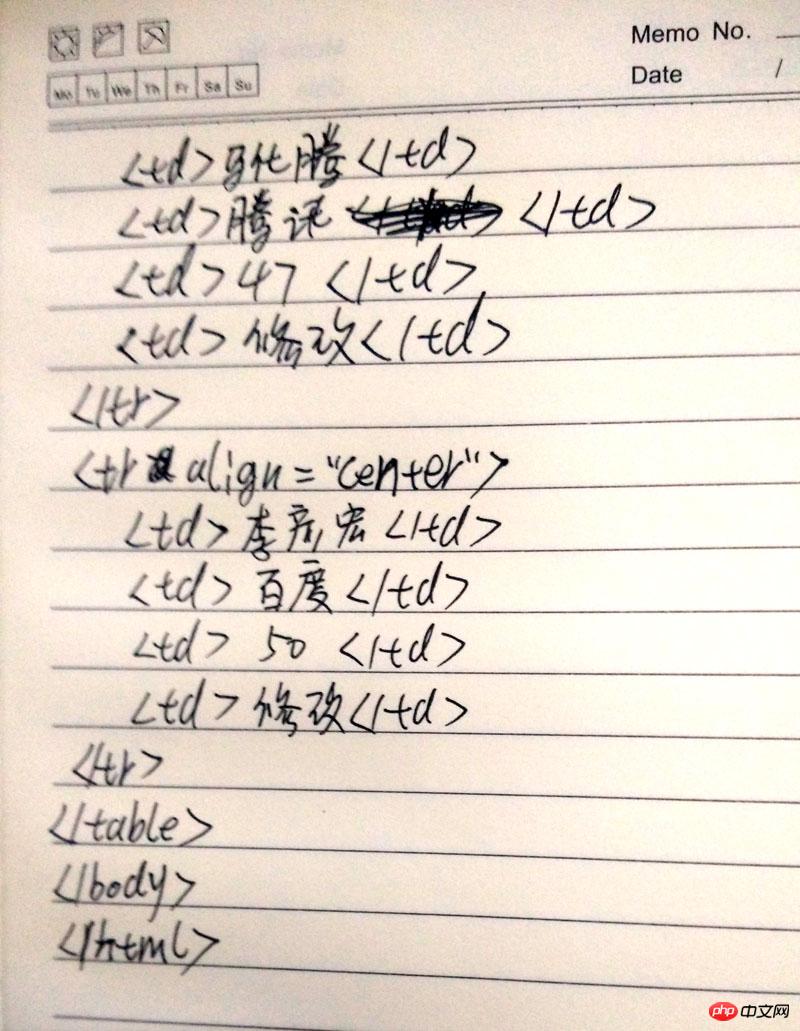 Memo No.
Mo Tu We Th Fr Sa Su
Date /
<td>马化腾</td>
<td>腾讯 </td>
<td>47 </td>
<td>修改</td>
</tr>
<tr align="center">
<td>李彦宏</td>
<td>百度</td>
<td>50 </td>
<td>修改</td>
</tr>
</table>
</body>
</html>
php 中文网